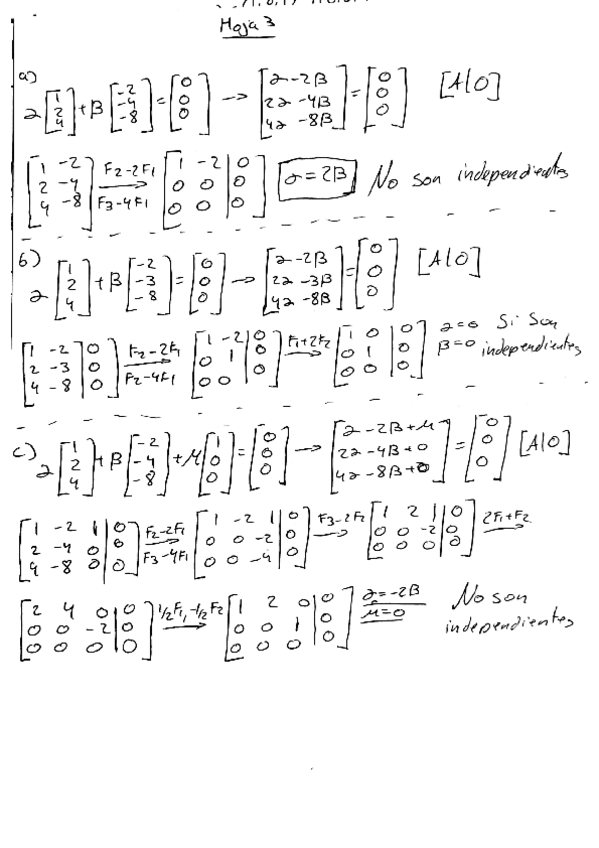 Hoja 3
a)
2 [1 2 4] + β [-2 -4 -8] = [0 0 0] → [2 -2β 22 -4β 42 -8β] = [0 0 0] [A|0]
[1 -2 2 -4 4 -8] F2-2F1 F3-4F1 → [1 -2 | 0 0 0 | 0 0 0 | 0] α=2β No son independientes
b)
2 [1 2 4] + β [-2 -3 -8] = [0 0 0] → [2 -2β 22 -3β 42 -8β] = [0 0 0] [A|0]
[1 -2 | 0 2 -3 | 0 4 -8 | 0] F2-2F1 F2-4F1 → [1 -2 | 0 0 1 | 0 0 0 | 0] F1+2F2 → [1 0 | 0 0 1 | 0 0 0 | 0] 2=0 β=0 Si Son independientes
c)
2 [1 2 4] + β [-2 -4 -8] + μ [1 0 0] = [0 0 0] → [2 -2β + μ 22 -4β + 0 42 -8β + 0] = [0 0 0] [A|0]
[1 -2 1 | 0 2 -4 0 | 0 4 -8 0 | 0] F2-2F1 F3-4F1 → [1 -2 1 | 0 0 0 -2 | 0 0 0 -4 | 0] F3-2F2 → [1 2 1 | 0 0 0 -2 | 0 0 0 0 | 0] 2F1+F2
[2 4 0 | 0 0 0 -2 | 0 0 0 0 | 0] 1/2F1, -1/2F2 → [1 2 0 | 0 0 0 1 | 0 0 0 0 | 0] 2=-2β μ=0 No son independientes